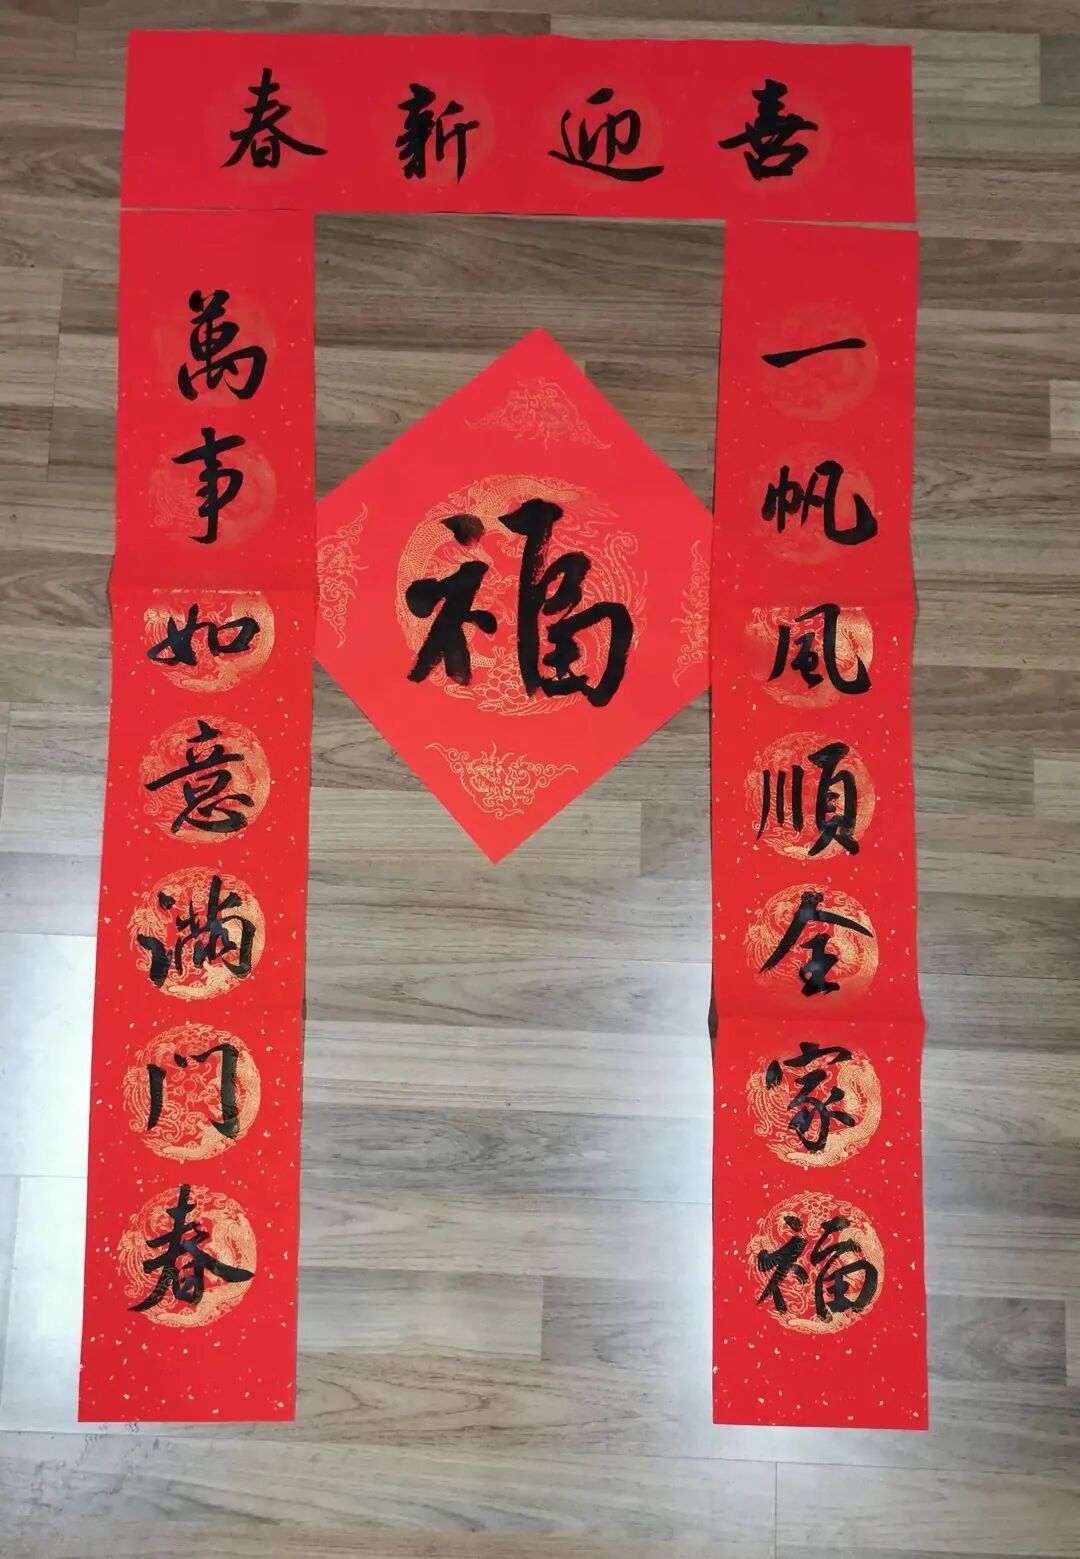 喜迎新春
一帆風順全家福
萬事如意满门春
福